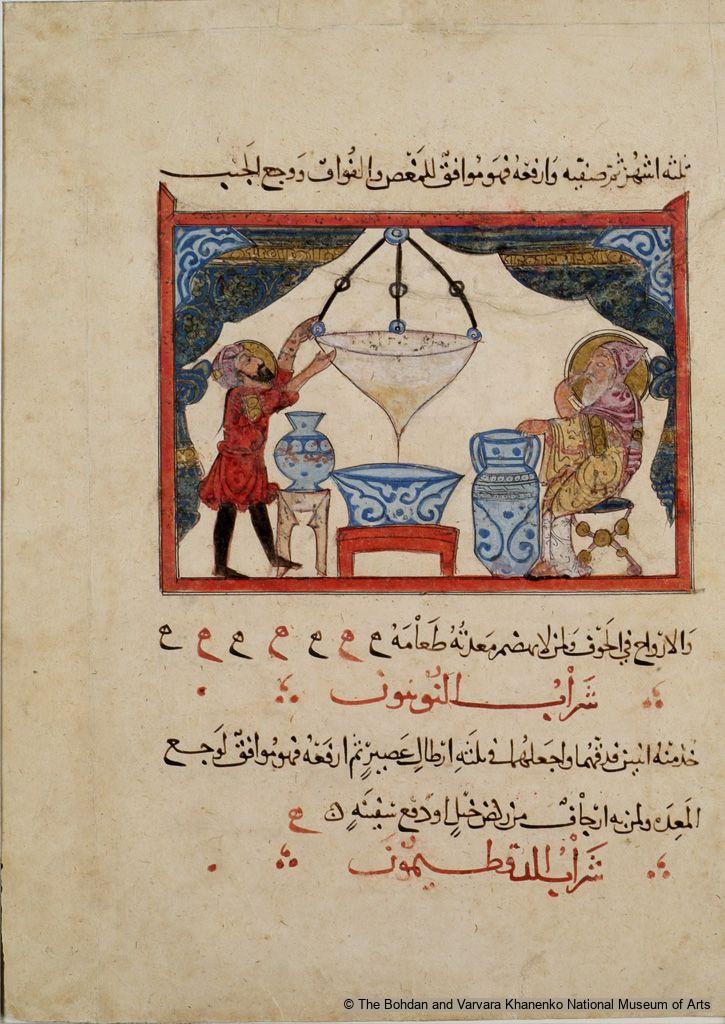 ثلثه اشهر ثم صفيه وارفعه فهو موافق للمغص والفواق ووجع الجنب
والارواح في الجوف ولمن لا يهضم معدته طعامه ح ح ح ح ح ح ح
شراب
خذ منه اثنين فدقهما واجعلهما في ثلثه ارطال عصير ثم ارفعه فهو موافق لوجع
المعده ولمن به ارجاف من ركض خيل او دفع سفينه ه ح
شراب
© The Bohdan and Varvara Khanenko National Museum of Arts